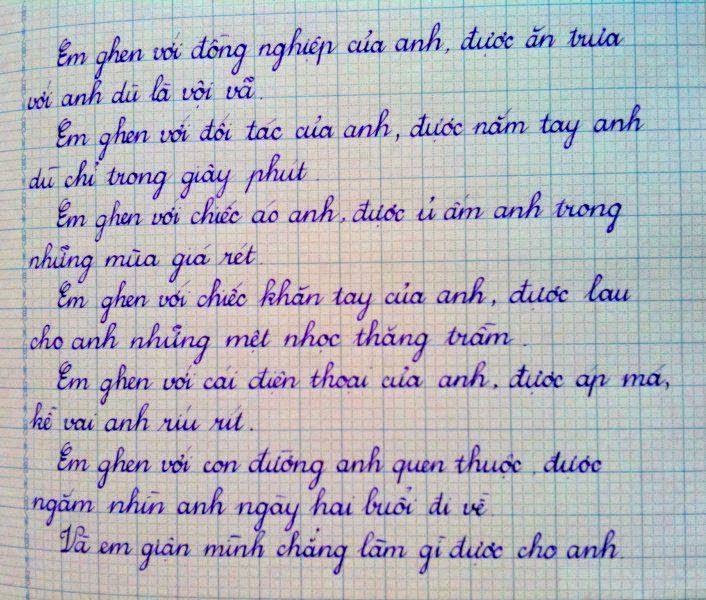 Em ghen với đồng nghiệp của anh, được ăn trưa
với anh dù là vội vã.
Em ghen với đối tác của anh, được nắm tay anh
dù chỉ trong giây phút.
Em ghen với chiếc áo anh, được ủ ấm anh trong
những mùa giá rét.
Em ghen với chiếc khăn tay của anh, được lau
cho anh những mệt nhọc thăng trầm.
Em ghen với cái điện thoại của anh, được áp má,
kề vai anh ríu rít.
Em ghen với con đường anh quen thuộc, được
ngắm nhìn anh ngày hai buổi đi về
Và em giận mình chẳng làm gì được cho anh.